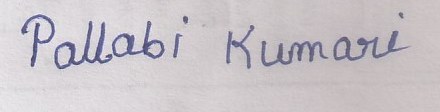 Pallabi Kumari